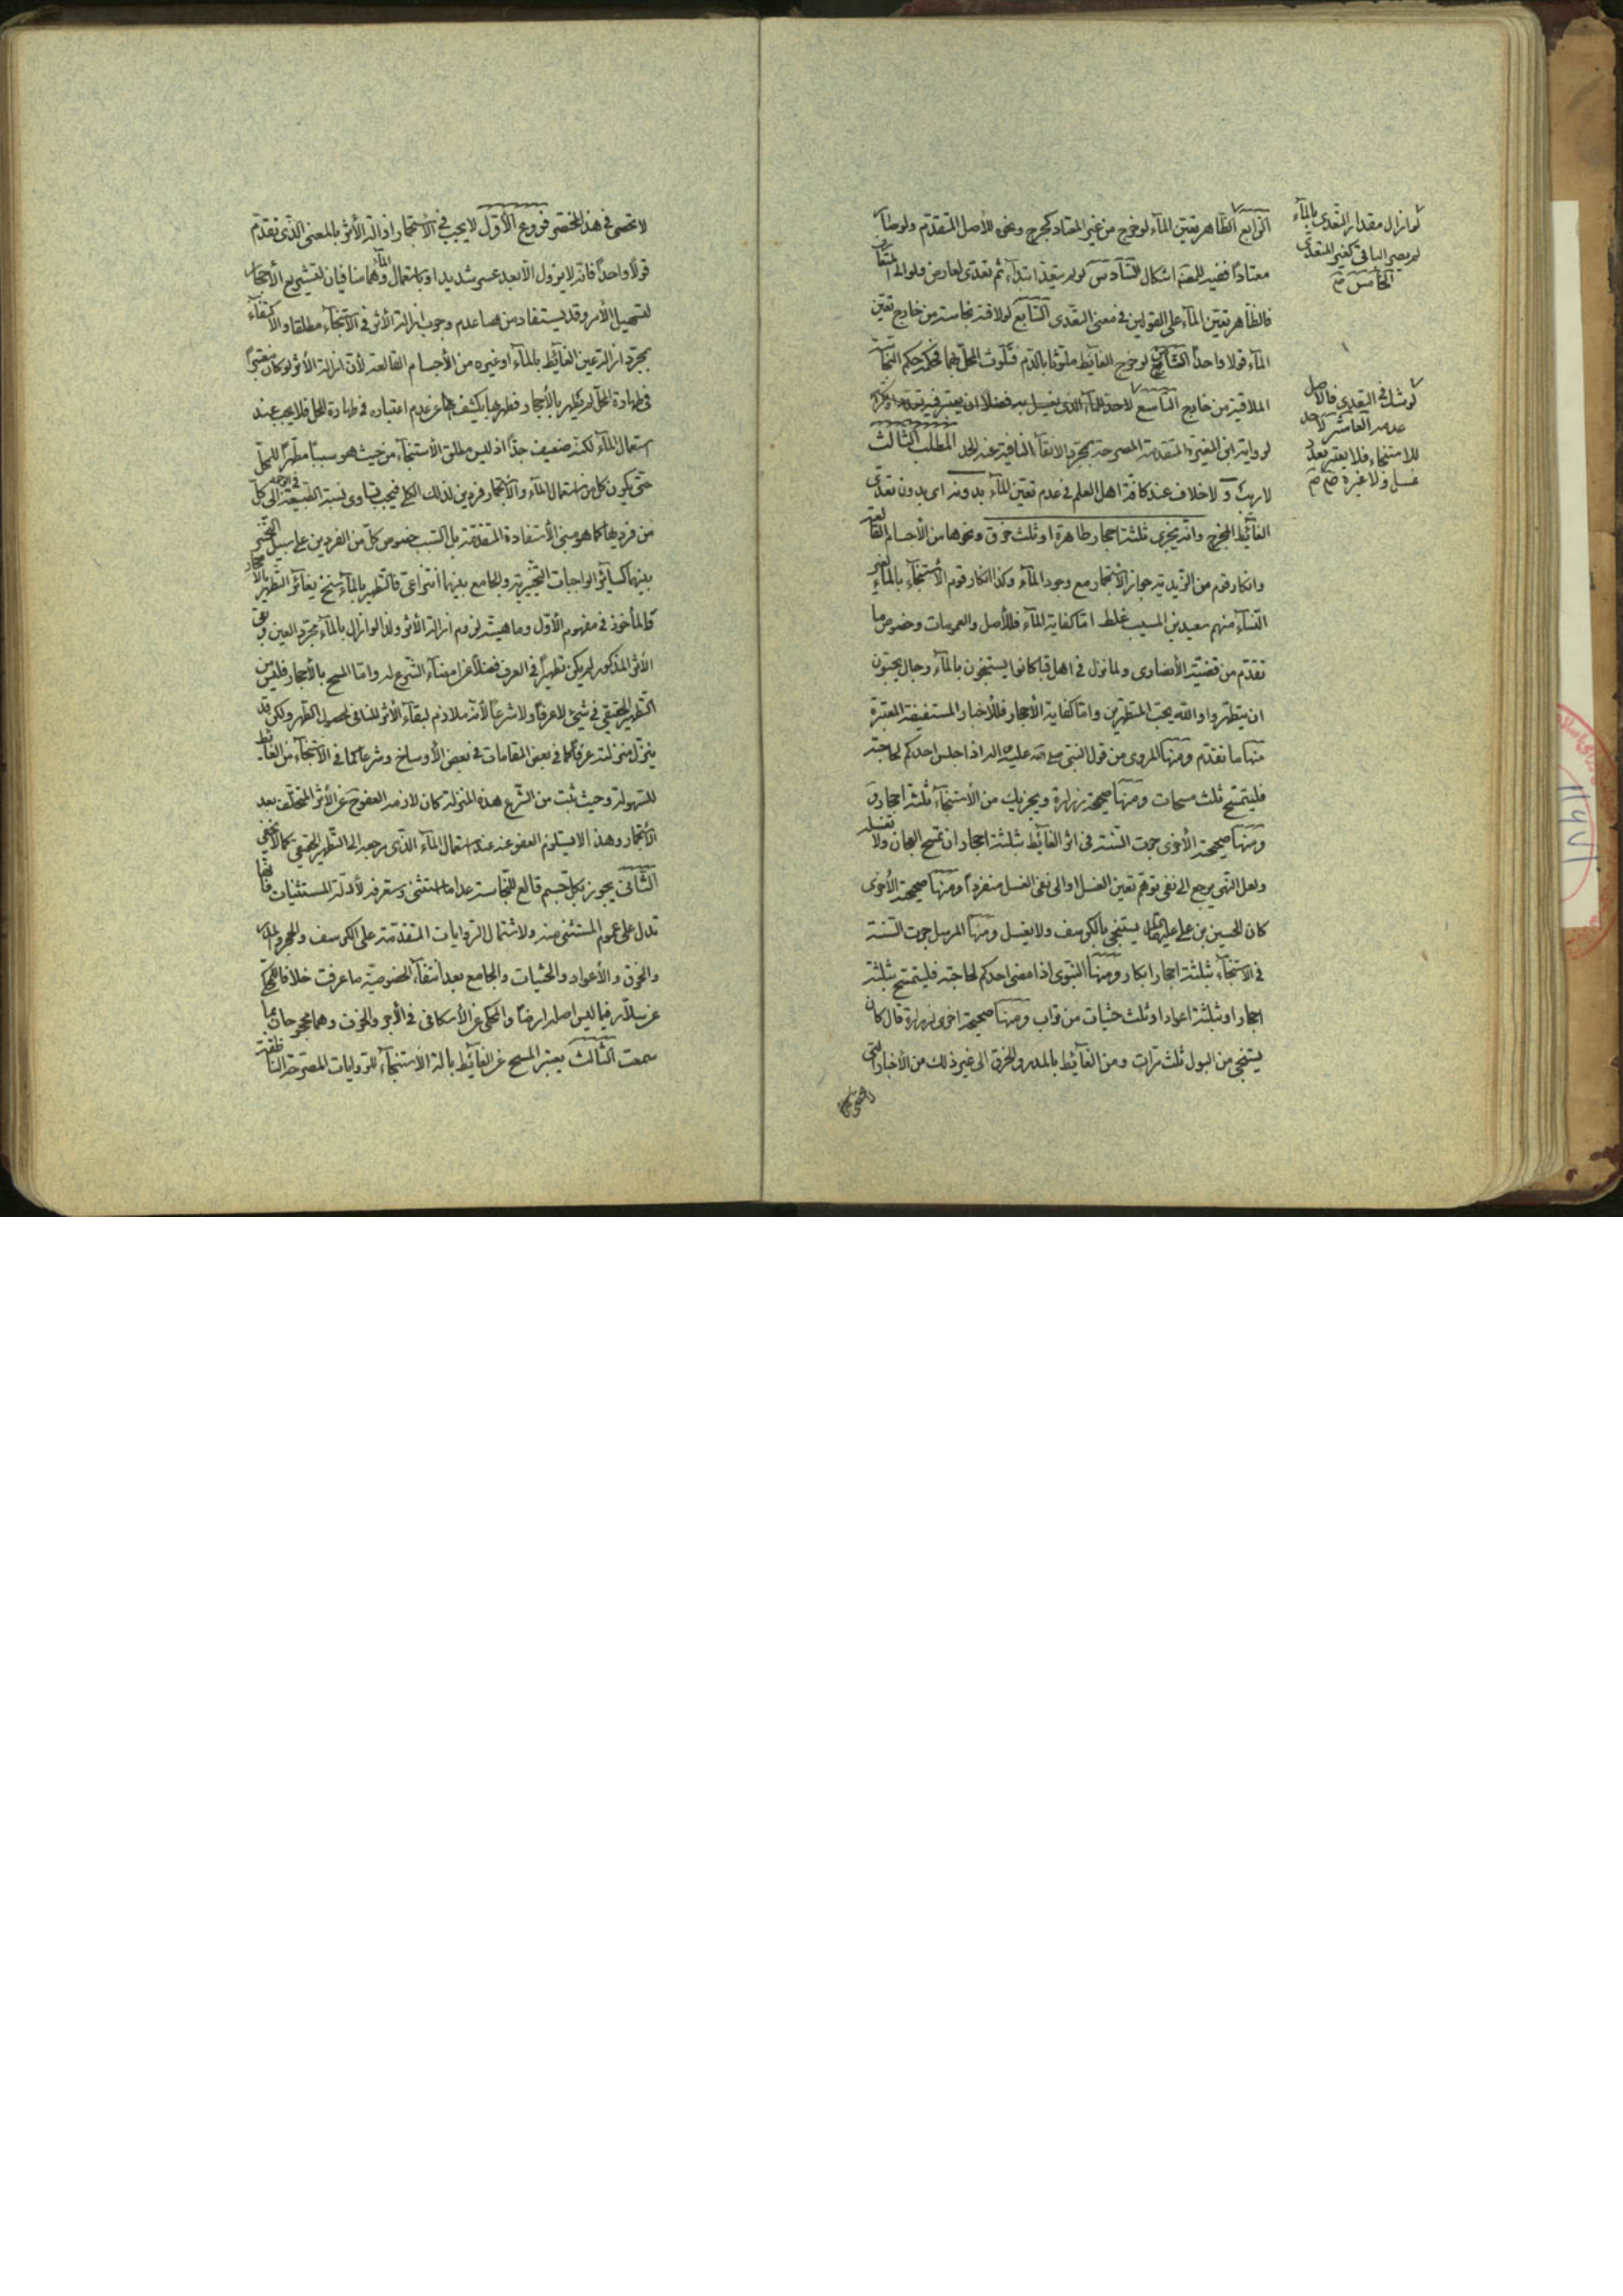 الرابع الظاهر تعين الماء لو خرج من غير المعتاد كجرح ونحوه للأصل المتقدم ولو صار
معتادا ففيه للمص اشكال السادس لو لم يتعد ابتداء ثم تعدى لعارض
فالظاهر تعين الماء على القولين في معنى التعدى السابع لو لاقته نجاسة من خارج تعين
الماء قولا واحدا الثامن لو خرج الغائط ملوثا بالدم فتلوث المحل بهما فحكمه حكم النجاسة
الملاقية من خارج التاسع لا حد للماء الذى يغسل به فضلا ان يعتبر فيه تعدد
لرواية ابن المغيرة المتقدمة المصرحة بمجرد الانقاء النافية عنه الحد المطلب الثالث
لا ريب و لا خلاف عند كافة اهل العلم في عدم تعين الماء بدونه اى بدون تعدى
الغائط المخرج وانه يجزى ثلثة احجار طاهرة او ثلث خرق ونحوها من الأجسام القالعة
وانكار قوم من الزيدية جواز الأستجمار مع وجود الماء وكذا انكار قوم الأستنجاء بالماء لغير
النساء منهم سعيد بن المسيب غلط اما كفاية الماء فللأصل والعمومات وخصوص ما
تقدم من قضية الأنصارى ولما نزل في اهل قبا كانوا يستنجون بالماء رجال يحبون
ان يتطهروا والله يحب المتطهرين واما كفاية الأحجار فللأخبار المستفيضة المعتبرة
منها ما تقدم ومنها المروى من قول النبى صلى الله عليه واله اذا جلس احدكم لحاجته
فليتمسح ثلث مسحات ومنها صحيحة زرارة ويجزيك من الأستنجاء ثلثة احجار
ومنها صحيحته الأخرى جرت السنة في اثر الغائط بثلثة احجار ان تمسح العجان ولا تغسله
ولعل النهى يرجع الى نفى توهم تعين الغسل او الى نفى الغسل منفردا ومنها صحيحته الأخرى
كان الحسين بن على عليهما السلام يستنجى بالكرسف ولا يغسل ومنها المرسل جرت السنة
في الاستنجاء بثلثة احجار ابكار ومنها النبوى اذا مضى احدكم لحاجته فليتمسح بثلثة
احجار او بثلثة اعواد او ثلث حثيات من تراب ومنها صحيحة اخرى لزرارة قال كان
يستنجى من البول ثلث مرات ومن الغائط بالمدر والخرق الى غير ذلك من الأخبار التى
لو ازال مقدار التعدى بالماء
لم يصر الباقى كغير المتعدى
الخامس
لو شك في التعدى فالاصل
عدمه العاشر لا حد
للاستنجاء فلا يعتبر تعدد
غسل ولا غيره
لا تحصى في هذا المختصر فروع الأول لا يجب في الأستجمار ازالة الأثر بالمعنى الذى تقدم
قولا واحدا فانه لا يزول الا بعد عسر شديد او باستعمال الماء وهما منافيان لتشريع الأحجار
لتسهيل الأمر وقد يستفاد من هنا عدم وجوب ازالة الأثر في الاستنجاء مطلقا والاكتفاء
بمجرد ازالة عين الغائط بالماء او غيره من الأجسام القالعة لأن ازالة الأثر لو كان معتبرا
في طهارة المحل لم يطهر بالأحجار فطهرها يكشف عن عدم اعتباره في طهارة المحل فلا يجب عند
استعمال الماء لكنه ضعيف جدا اذ ليس مطلق الأستنجاء من حيث هو سببا مطهرا للمحل
حتى يكون كل من استعمال الماء والأستجمار فردين لذلك الكلى فيجب تساوى نسبة الطبيعة الى كل
من فرديها كما هو مبنى الأستفادة المتقدمة بل السبب خصوص كل من الفردين على سبيل التخيير
بينهما كسائر الواجبات التخييرية والجامع بينهما انتزاعى فالتطهير بالماء سنخ يغائر التطهير بالأحجار
والمأخوذ في مفهوم الأول وماهيته لزوم ازالة الأثر ولذا لو ازال بالماء مجرد العين وبقى
الأثر المذكور لم يكن تطهيرا في العرف فضلا عن امضاء الشرع له واما المسح بالأحجار فليس من
التطهير الحقيقى في شيئ لا عرفا ولا شرعا لأنه ملازم لبقاء الأثر المنافى لحصول الطهر ولكن قد
ينزل منزلته عرفا كما في بعض المقامات في بعض الأوساخ وشرعا كما في الأستنجاء من الغائط
للسهولة وحيث ثبت من الشرع هذه المنزلة كان لازمه العفو عن الأثر المتخلف بعد
الأستجمار وهذا لا يستلزم العفو عنه عند استعمال الماء الذى مرجعه الى التطهير الحقيقى كما لا يخفى
الثانى يجوز بكل جسم قالع للنجاسة عدا ما استثنى وستعرفه لأدلة المستثنيات فانها
تدل على عموم المستثنى منه ولاشتمال الروايات المتقدمة على الكرسف والحجر والمدر
والخرق والأعواد والحثيات والجامع بعد انتفاء الخصوصية ما عرفت خلافا للمحكى
عن سلار فيما ليس اصله ارضا والمحكى عن الأسكافى في الأجر والخزف وهما محجوجان بما
سمعت الثالث يعتبر المسح عن الغائط بالة الأستنجاء للروايات المصرحة